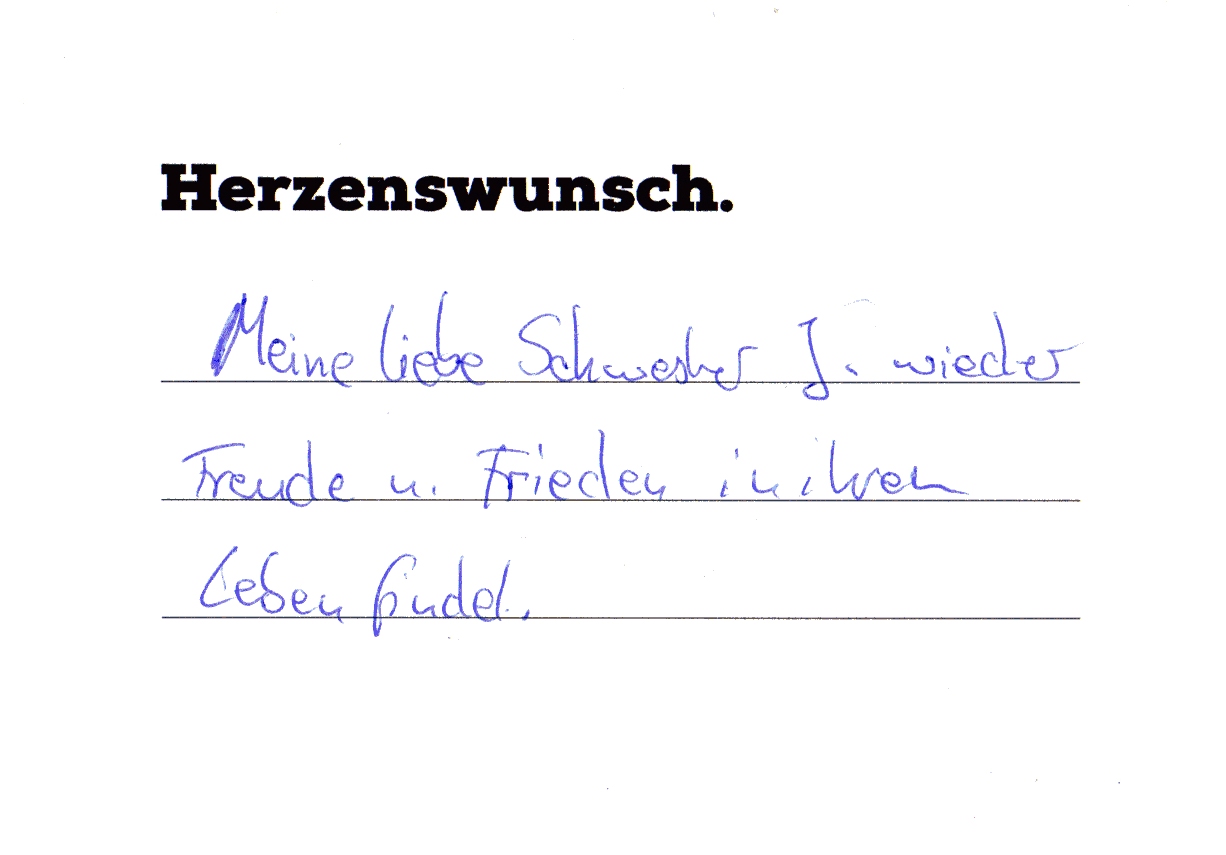 Herzenswunsch.
Meine liebe Schwester J. wieder
Freude u. Frieden in ihren
Leben findet.